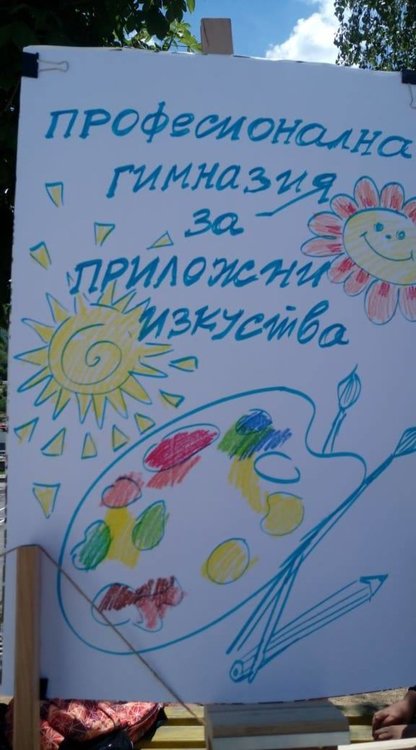 ПРОФЕСИОНАЛНА
ГИМНАЗИЯ
ЗА
ПРИЛОЖНИ
ИЗКУСТВА